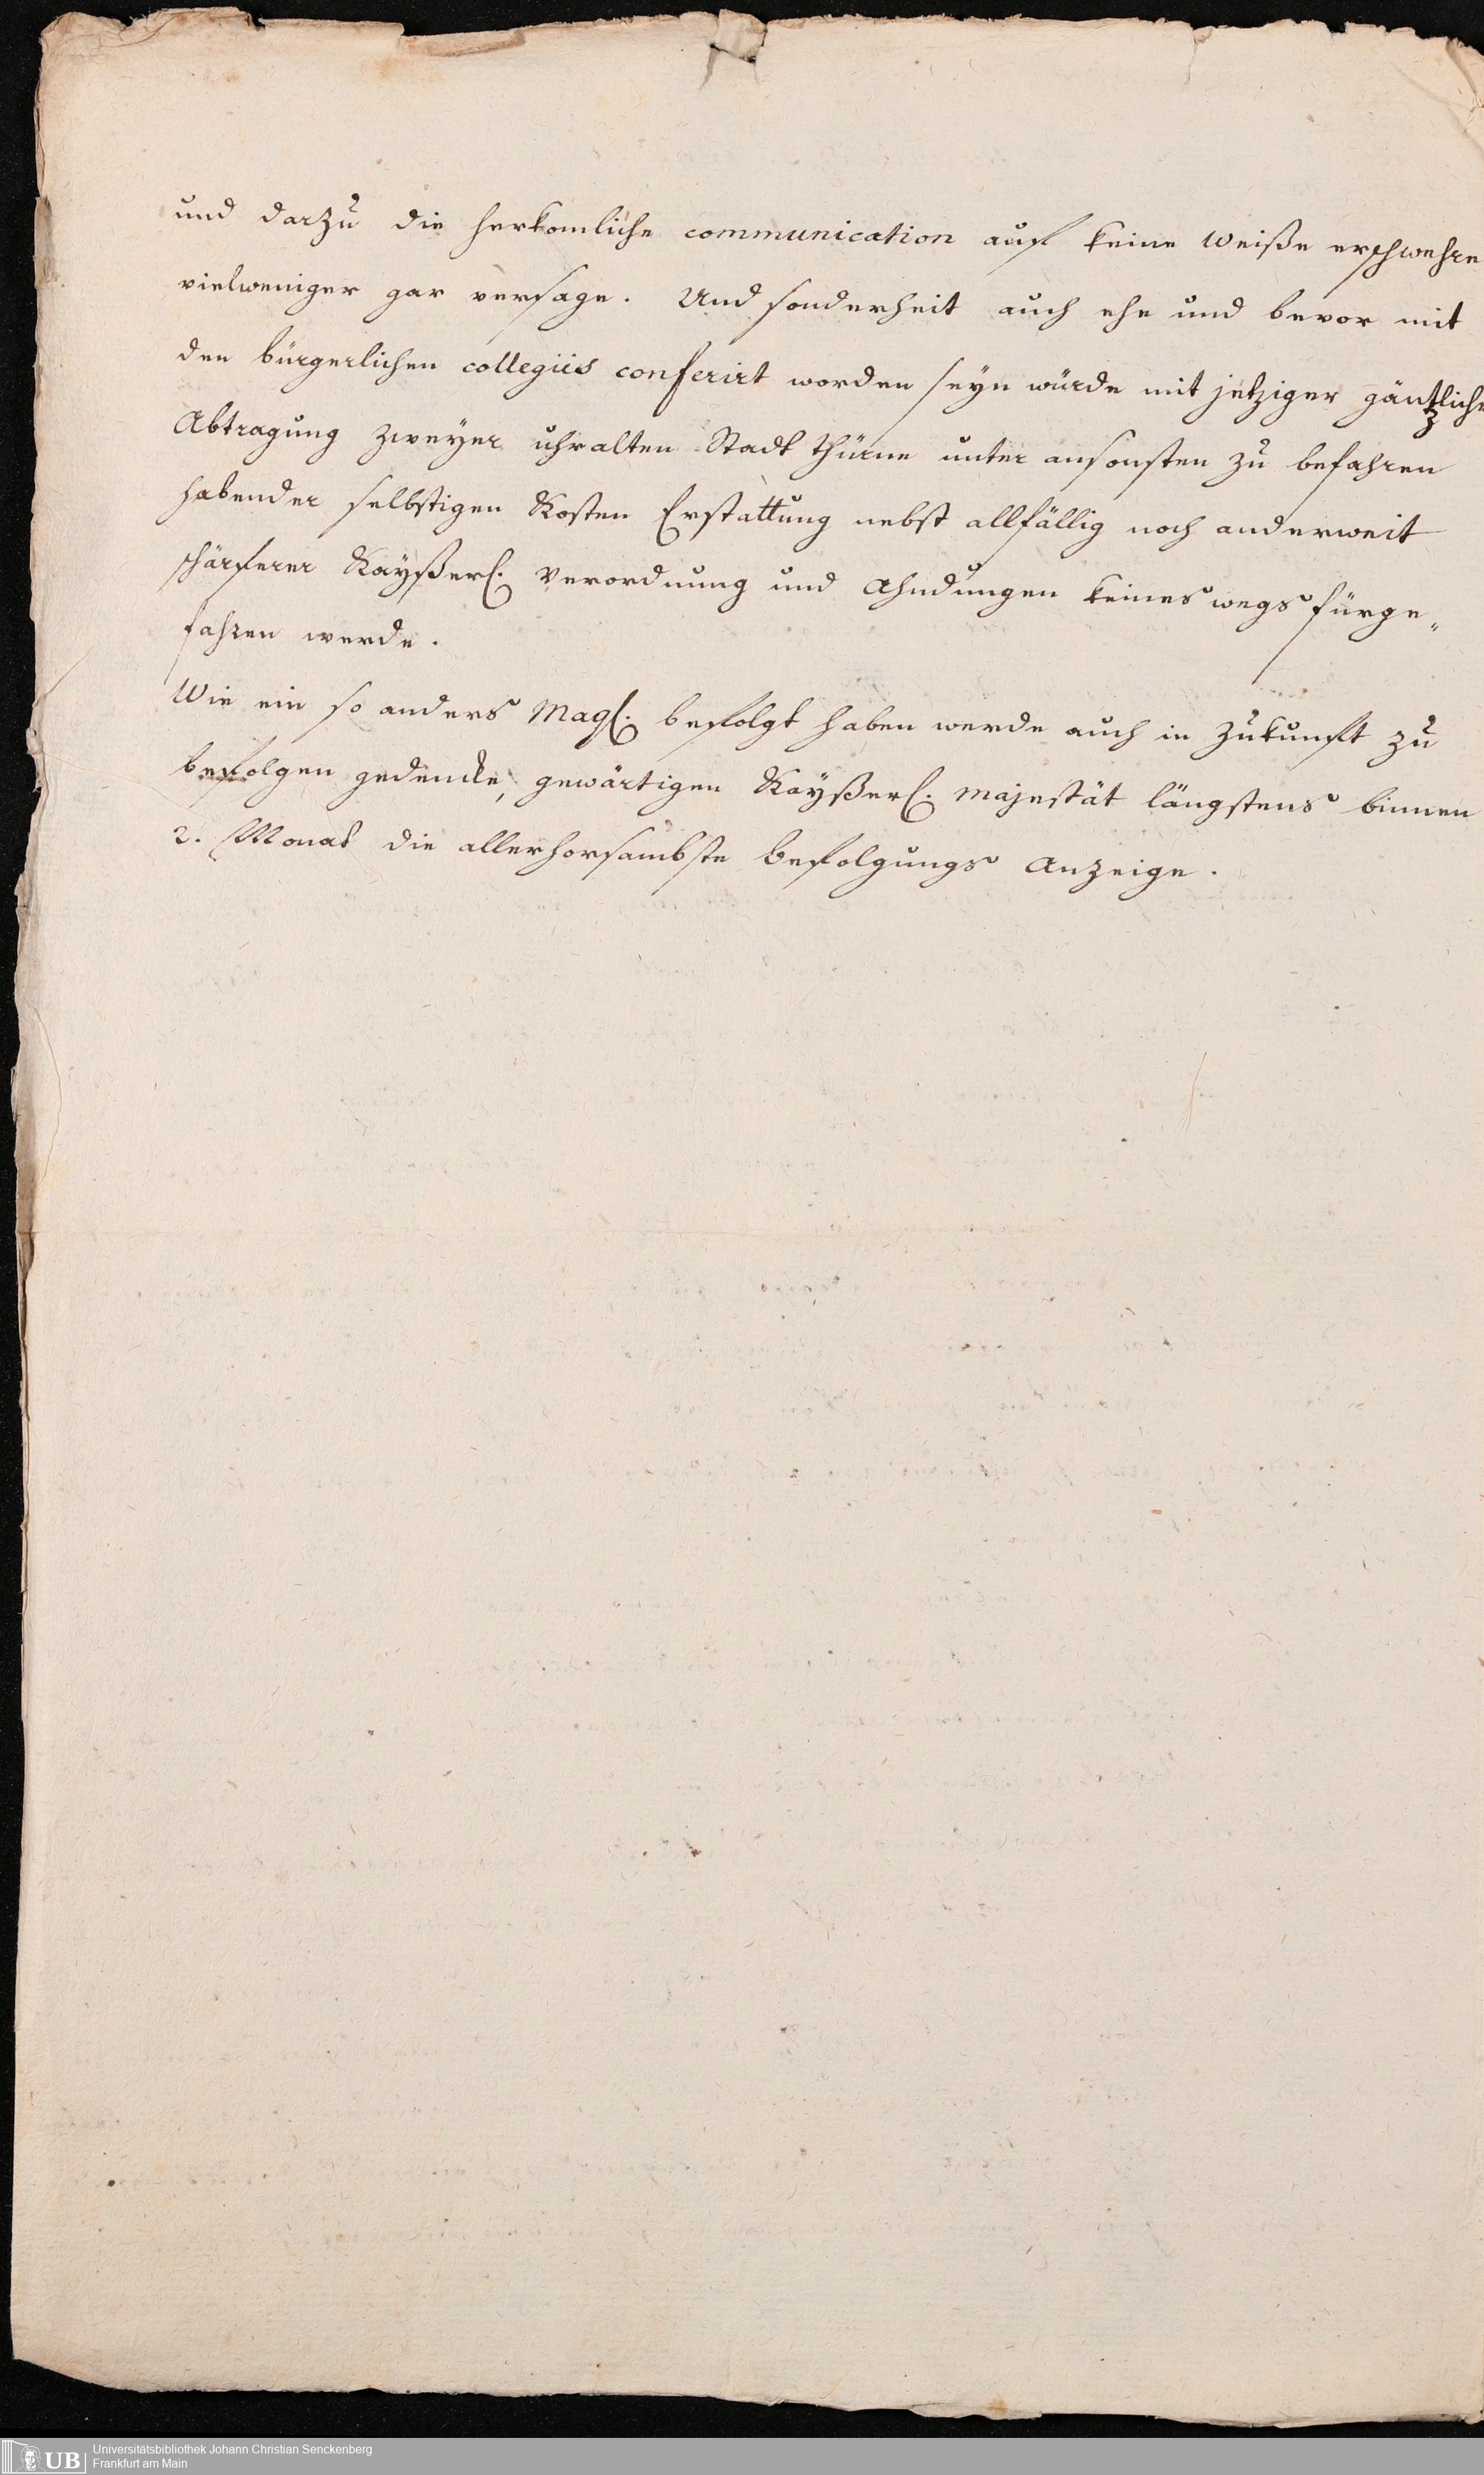 und darzu die herkomliche communication auf keine Weiße erschwehre
vielweniger gar versage. Und sonderheit auch ehe und bevor mit
den bürgerlichen collegiis conferirt worden seyn würde mit jetziger gäntzliche
Abtragung zweyer uhralten Stadt thürne unter ansonsten zu befahren
habender selbstigen Kosten Erstattung nebst allfällig noch anderweit
schärferer Kayßerl. Verordnung und Ahndungen keines wegs fürge„
fahren werde.
Wie ein so anders Magl. befolgt haben werde auch in Zukunft zu
befolgen gedencke, gewärtigen Kayßerl. Majestät längstens binnen
2. Monat die allerhorsambste befolgungs Anzeige.
UB
Universitätsbibliothek Johann Christian Senckenberg
Frankfurt am Main